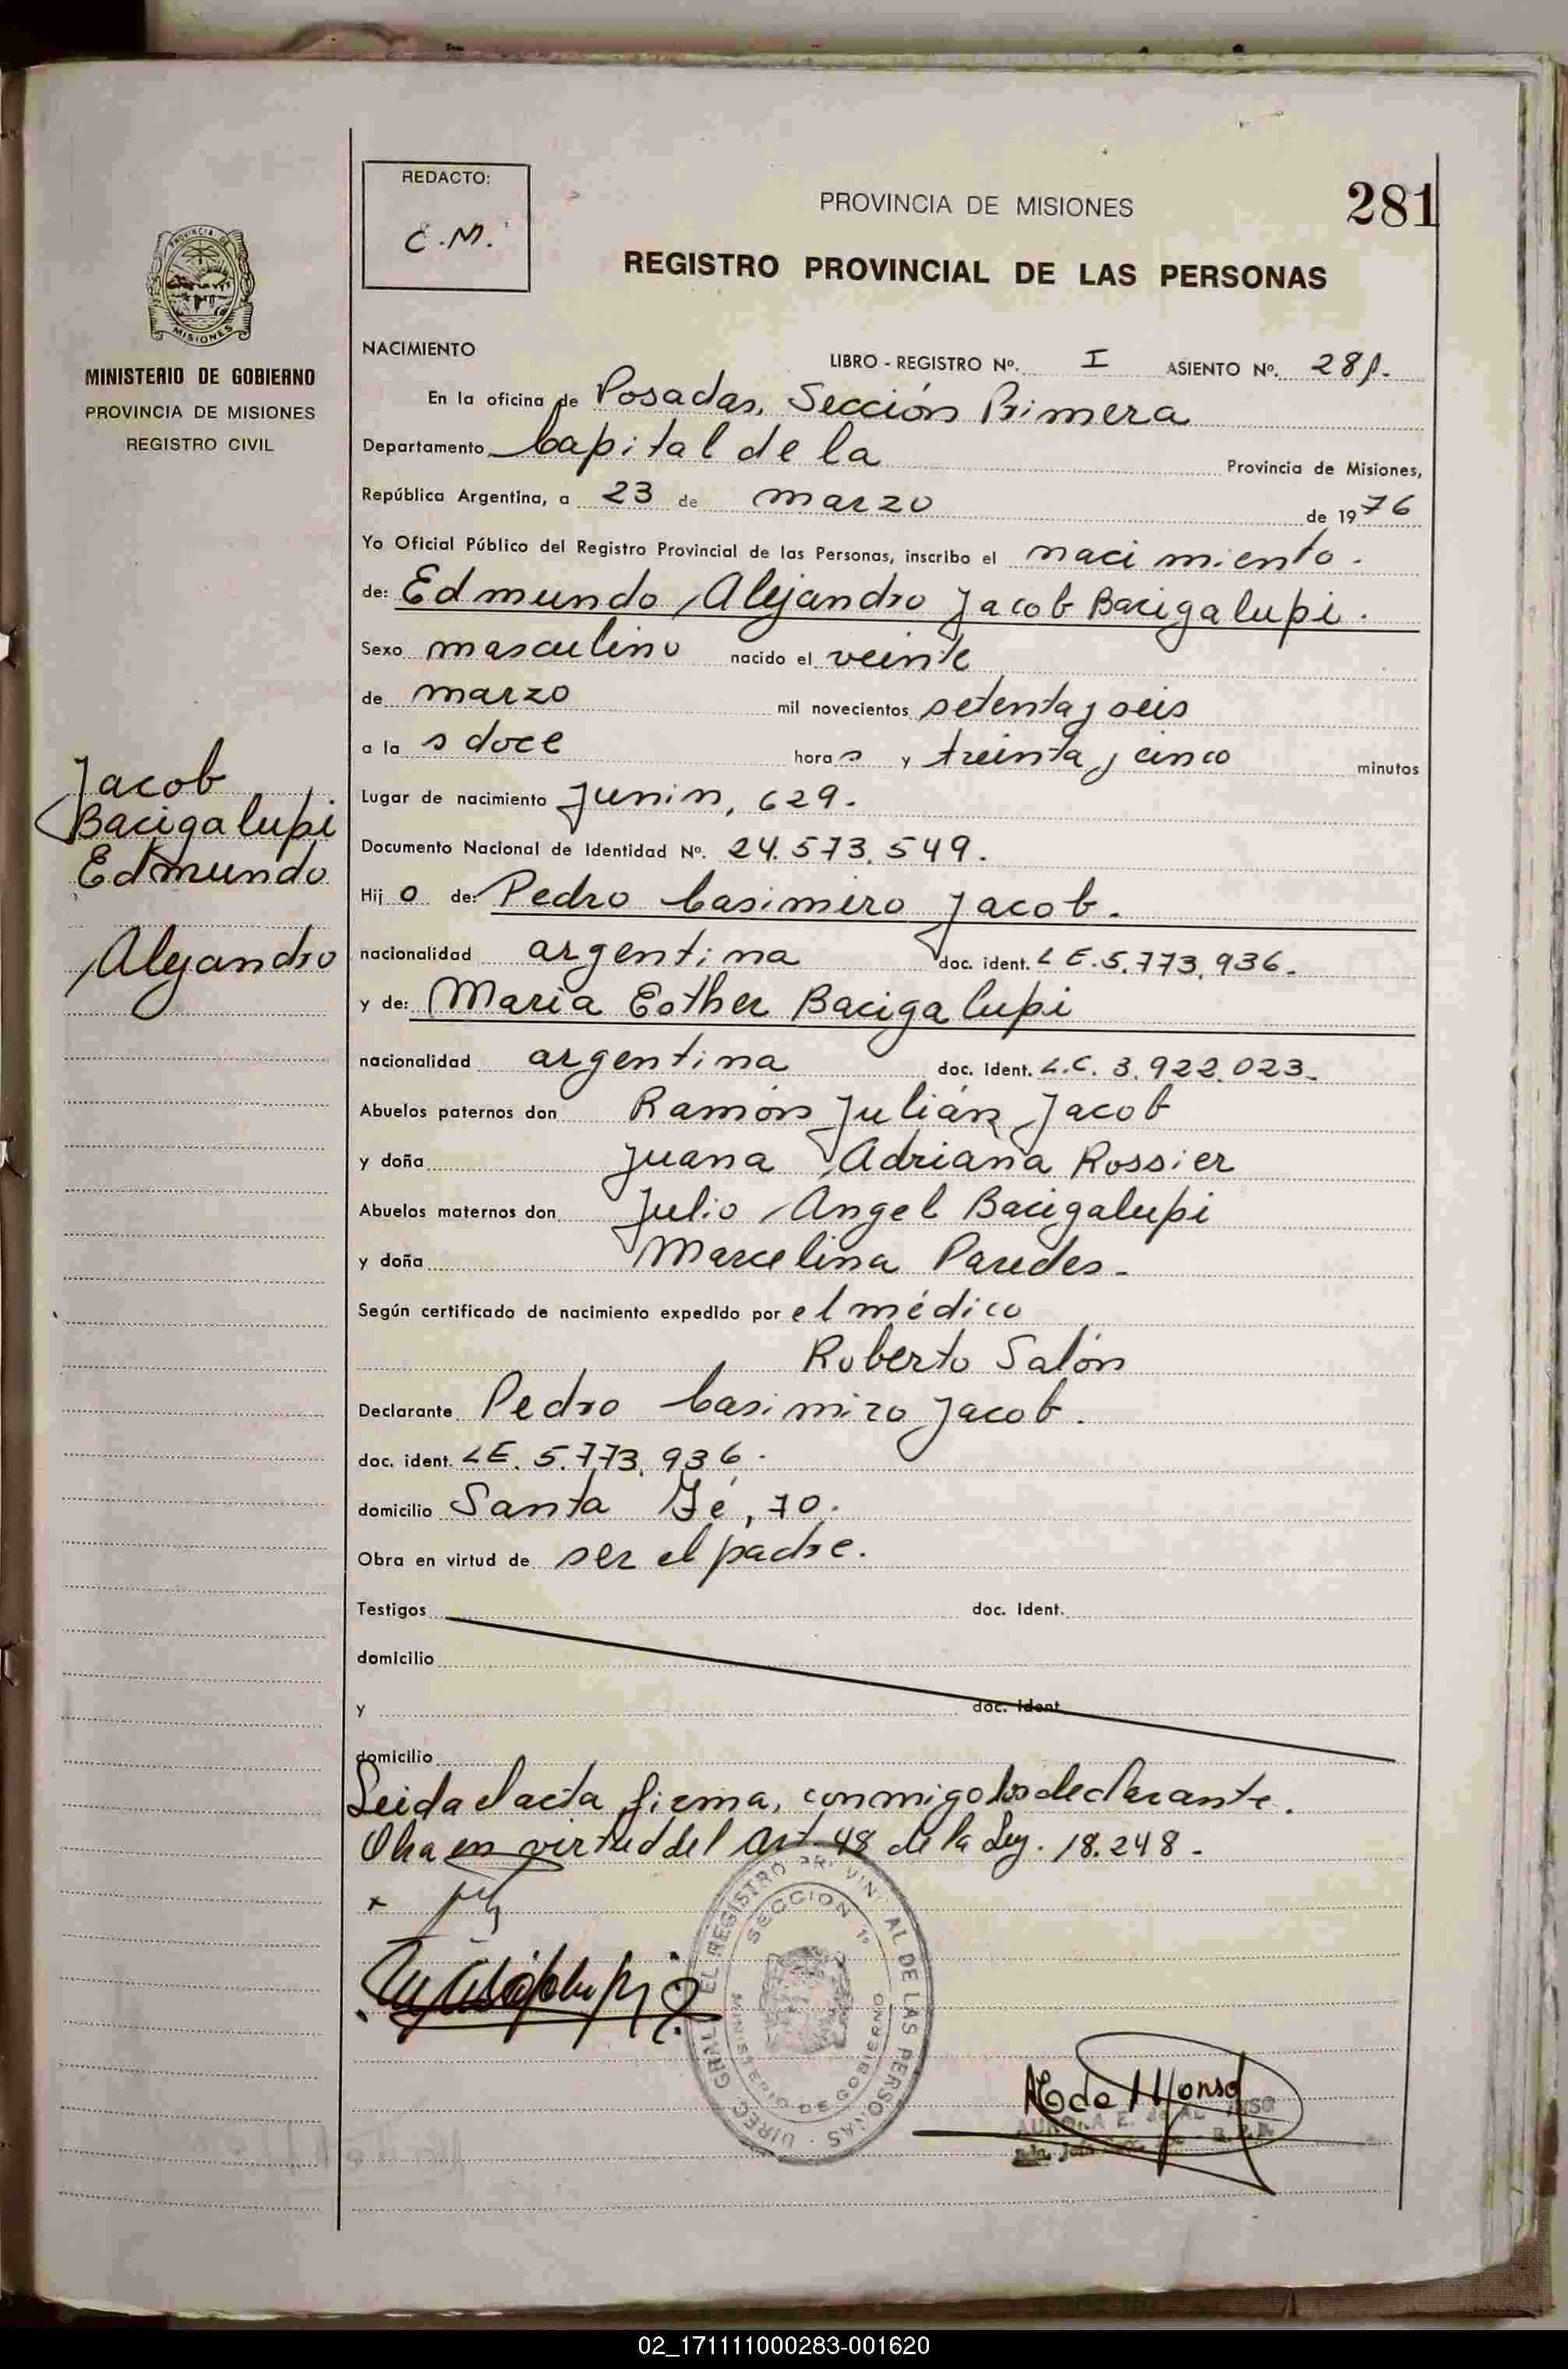 REDACTO:
C.M.
PROVINCIA DE MISIONES
281
REGISTRO PROVINCIAL DE LAS PERSONAS
PROVINCIA DE MISIONES
MINISTERIO DE GOBIERNO
PROVINCIA DE MISIONES
REGISTRO CIVIL
Jacob
Bacigalupi
Edmundo
Alejandro
NACIMIENTO
LIBRO - REGISTRO Nº. I ASIENTO Nº. 281.
En la oficina de Posadas, Sección Primera
Departamento Capital de la Provincia de Misiones,
República Argentina, a 23 de marzo de 1976
Yo Oficial Público del Registro Provincial de las Personas, inscribo el nacimiento.
de: Edmundo Alejandro Jacob Bacigalupi.
Sexo masculino nacido el veinte
de marzo mil novecientos setenta y seis
a la s doce hora s y treinta y cinco minutos
Lugar de nacimiento Junin, 629.
Documento Nacional de Identidad Nº. 24.573.549.
Hij o de: Pedro Casimiro Jacob.
nacionalidad argentina doc. ident. L E. 5.773.936.
y de: Maria Esther Bacigalupi
nacionalidad argentina doc. ident. L.C. 3.922.023.
Abuelos paternos don Ramón Julián Jacob
y doña Juana Adriana Rossier
Abuelos maternos don Julio Angel Bacigalupi
y doña Marcelina Paredes.
Según certificado de nacimiento expedido por el médico
Roberto Salón
Declarante Pedro Casimiro Jacob.
doc. ident. LE. 5.773.936.
domicilio Santa Fé, 70.
Obra en virtud de ser el padre.
Testigos doc. ident.
domicilio
y doc. ident.
domicilio
Leida el acta firma, conmigo los declarante.
Obra en virtud del Art. 48 de la Ley. 18.248.
x
DIREC. GRAL. DEL REGISTRO PROVINCIAL DE LAS PERSONAS
SECCION 1º
MINISTERIO DE GOBIERNO
de Alfonso
02_171111000283-001620